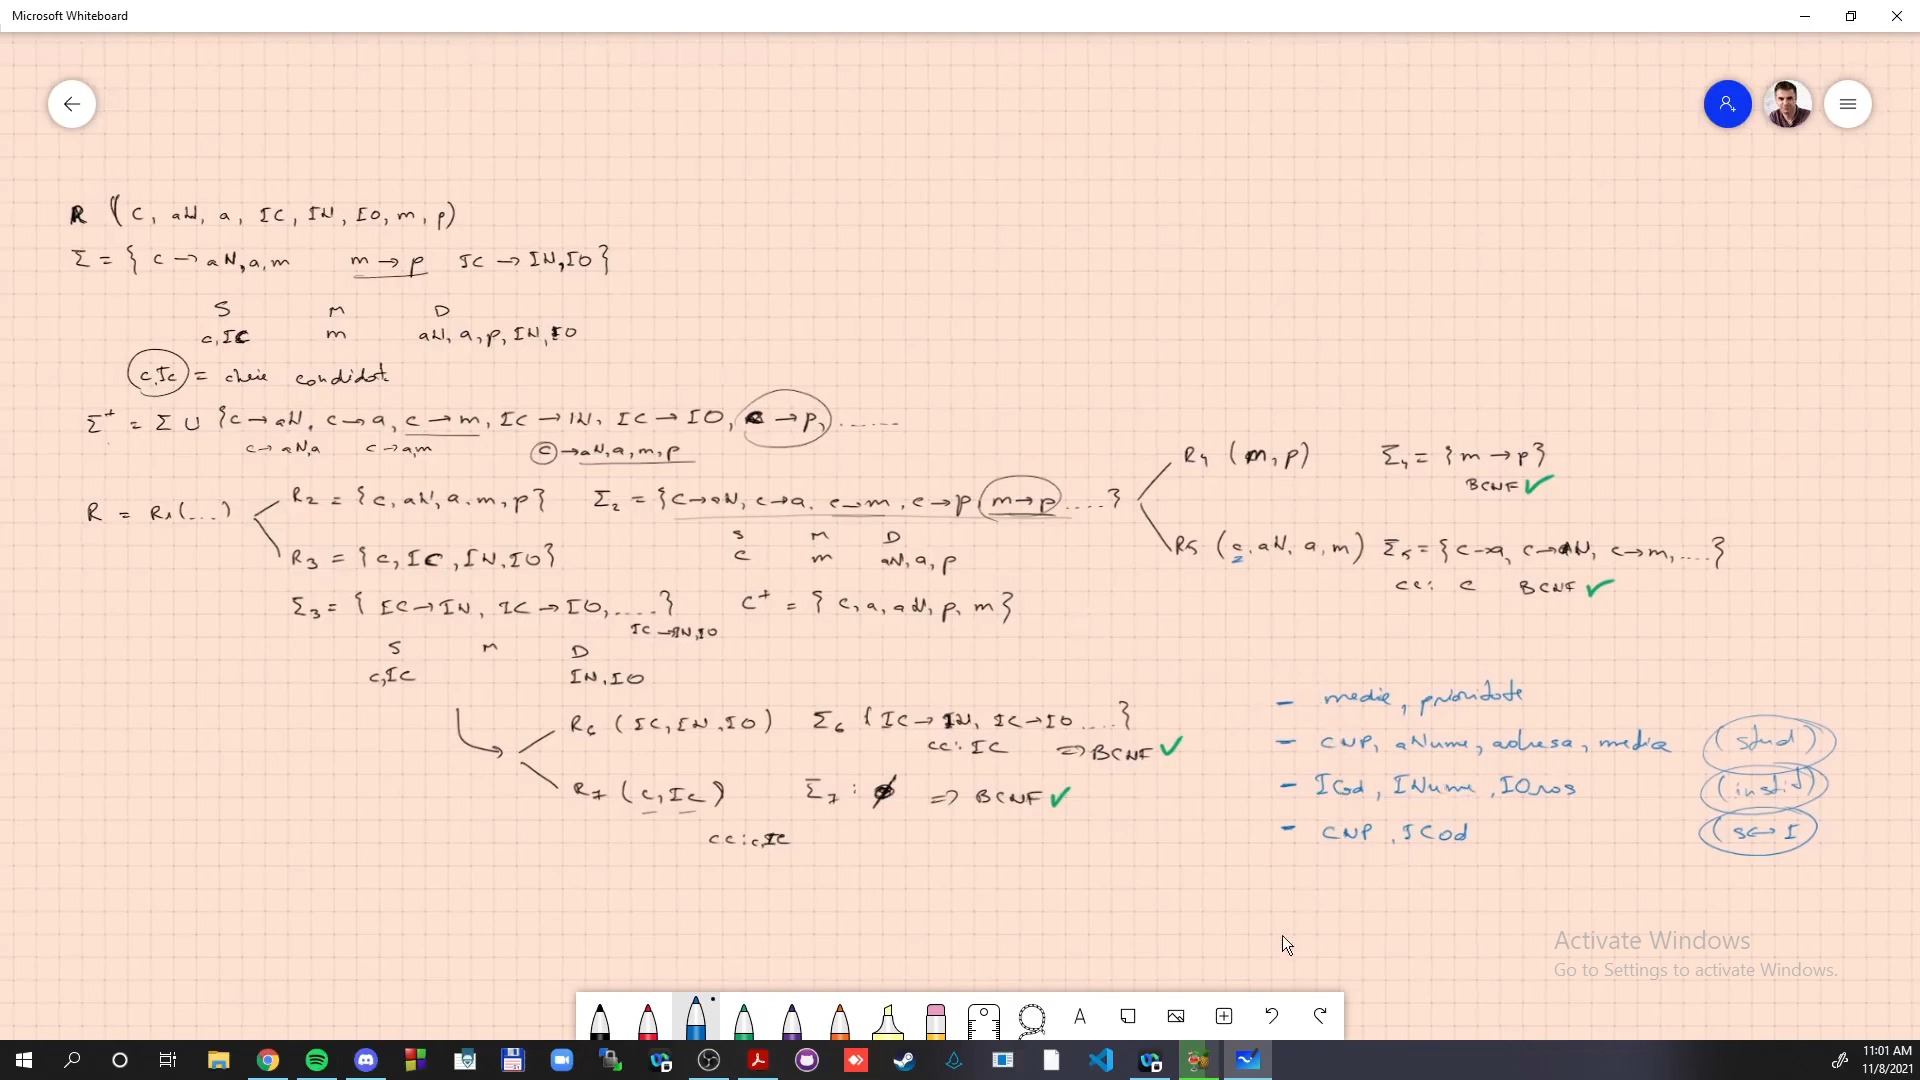 Microsoft Whiteboard
R ( C, aN, a, IC, IN, IO, m, p)
Σ = { C → aN, a, m m → p IC → IN, IO }
S M D
c, IC m aN, a, p, IN, IO
c, Ic = cheie candidat
Σ⁺ = Σ ∪ { c → aN, c → a, c → m, IC → IN, IC → IO, c → p, .......
c → aN, a c → a, m c → aN, a, m, p
R = R1 (....)
R2 = { c, aN, a, m, p } Σ2 = { c → aN, c → a, c → m, c → p, m → p ..... }
S M D
c m aN, a, p
R3 = { c, IC, IN, IO }
Σ3 = { IC → IN, IC → IO, ..... } c⁺ = { c, a, aN, p, m }
IC → IN, IO
S M D
c, IC IN, IO
R4 ( m, p ) Σ4 = { m → p }
BCNF ✓
R5 ( c, aN, a, m ) Σ5 = { c → a, c → aN, c → m, ..... }
cc: c BCNF ✓
R6 ( IC, IN, IO ) Σ6 { IC → IN, IC → IO ..... }
cc: IC => BCNF ✓
R7 ( c, Ic ) Σ7 : ∅ => BCNF ✓
cc: c, IC
- medie, prioritate
- CNP, aNume, adresa, media (stud)
- ICod, INume, IOras (instit)
- CNP, ICod (S ↔ I)
Activate Windows
Go to Settings to activate Windows.
A
11:01 AM
11/8/2021